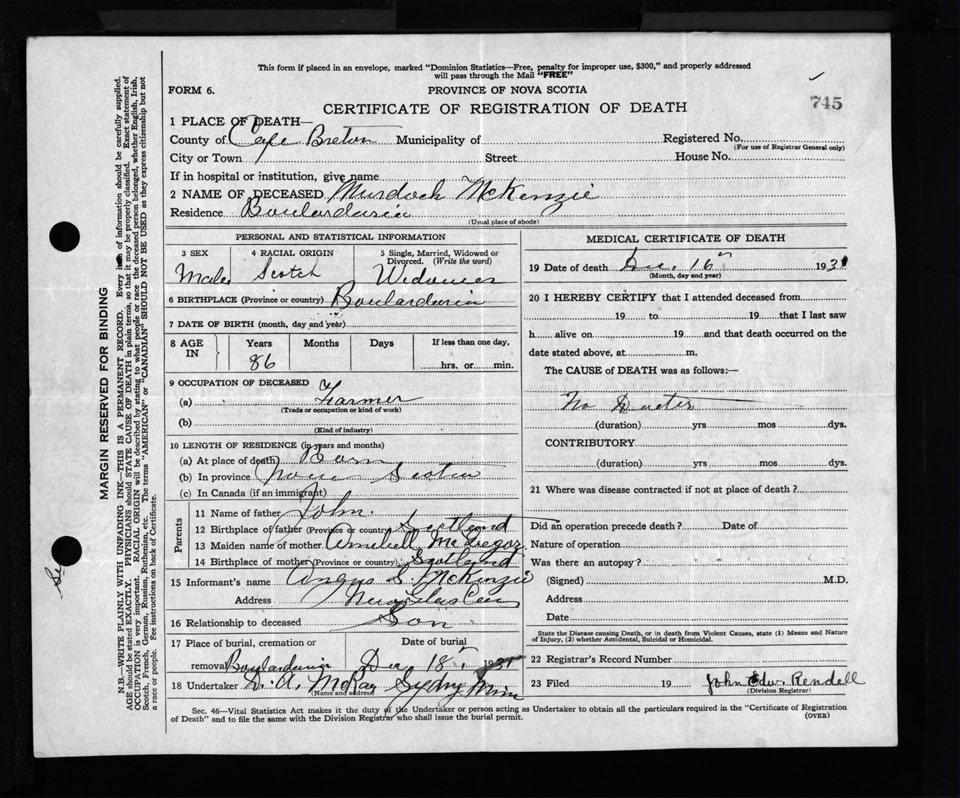 This form if placed in an envelope, marked "Dominion Statistics—Free, penalty for improper use, $300," and properly addressed
will pass through the Mail "FREE"
FORM 6.
PROVINCE OF NOVA SCOTIA
745
CERTIFICATE OF REGISTRATION OF DEATH
1 PLACE OF DEATH—
County of Cape Breton Municipality of Registered No.
(For use of Registrar General only)
City or Town Street House No.
If in hospital or institution, give name
2 NAME OF DECEASED Murdoch McKenzie
Residence Boulardarie
(Usual place of abode)
PERSONAL AND STATISTICAL INFORMATION
3 SEX 4 RACIAL ORIGIN 5 Single, Married, Widowed or Divorced. (Write the word)
Male Scotch Widower
6 BIRTHPLACE (Province or country) Boulardarie
7 DATE OF BIRTH (month, day and year)
8 AGE IN Years Months Days If less than one day,
86 hrs. or min.
9 OCCUPATION OF DECEASED
(a) Farmer
(Trade or occupation or kind of work)
(b)
(Kind of industry)
10 LENGTH OF RESIDENCE (in years and months)
(a) At place of death Born
(b) In province Nova Scotia
(c) In Canada (if an immigrant)
Parents
11 Name of father John
12 Birthplace of father (Province or country) Scotland
13 Maiden name of mother McGregor
14 Birthplace of mother (Province or country) Scotland
15 Informant's name Angus S. McKinzie
Address New Glas
16 Relationship to deceased Son
17 Place of burial, cremation or Date of burial
removal Boulardarie Dec 18 1931
18 Undertaker D. A. McRay Sydny Mine
(Name and address)
MEDICAL CERTIFICATE OF DEATH
19 Date of death Dec. 16" 1931
(Month, day and year)
20 I HEREBY CERTIFY that I attended deceased from
19 to 19 that I last saw
h alive on 19 and that death occurred on
date stated above, at m.
The CAUSE of DEATH was as follows:—
No Docter
(duration) yrs mos dys.
CONTRIBUTORY
(duration) yrs mos dys.
21 Where was disease contracted if not at place of death?
Did an operation precede death? Date of
Nature of operation
Was there an autopsy?
(Signed) M.D.
Address
Date
State the Disease causing Death, or in death from Violent Causes, state (1) Means and Nature
of Injury, (2) whether Accidental, Suicidal or Homicidal.
22 Registrar's Record Number
23 Filed 19 John Edw. Rendall
(Division Registrar)
Sec. 46—Vital Statistics Act makes it the duty of the Undertaker or person acting as Undertaker to obtain all the particulars required in the "Certificate of Registration
of Death" and to file the same with the Division Registrar who shall issue the burial permit.
(OVER)
MARGIN RESERVED FOR BINDING
N.B.—WRITE PLAINLY WITH UNFADING INK—THIS IS A PERMANENT RECORD. Every item of information should be carefully supplied.
AGE should be stated EXACTLY. PHYSICIANS should STATE CAUSE OF DEATH in plain terms, so that it may be properly classified. Exact statement of
OCCUPATION is very important. RACIAL ORIGIN will be described by stating to what people or race the deceased person belonged, whether English, Irish,
Scotch, French, German, Russian, Ruthenian, etc. The terms "AMERICAN" or "CANADIAN" SHOULD NOT BE USED as they express citizenship but not
a race or people. See instructions on back of Certificate.